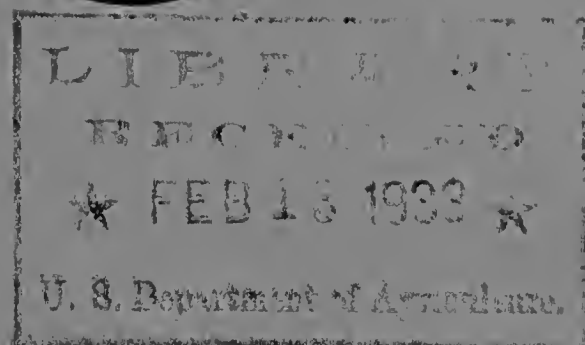 LIBRARY
RECEIVED
★ FEB 13 1933 ★
U. S. Department of Agriculture.